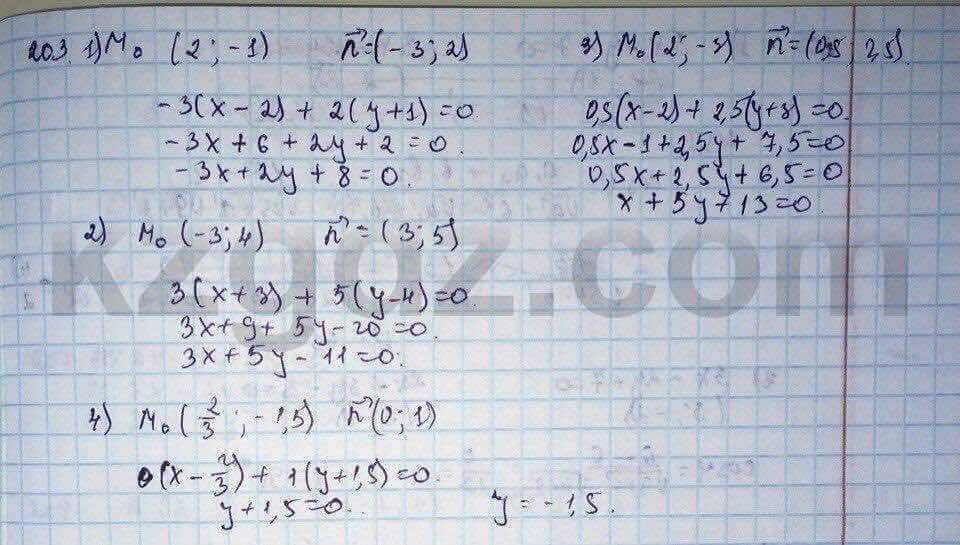 203. 1) M₀ (2; -1) n⃗ = (-3; 2)
-3(x-2) + 2(y+1) = 0
-3x + 6 + 2y + 2 = 0.
-3x + 2y + 8 = 0.
2) M₀ (-3; 4) n⃗ = (3; 5)
3(x+3) + 5(y-4) = 0.
3x + 9 + 5y - 20 = 0.
3x + 5y - 11 = 0.
3) M₀ (2; -3) n⃗ = (0,5; 2,5).
0,5(x-2) + 2,5(y+3) = 0.
0,5x - 1 + 2,5y + 7,5 = 0
0,5x + 2,5y + 6,5 = 0
x + 5y + 13 = 0.
4) M₀ (2/3; -1,5) n⃗ (0; 1)
0(x - 2/3) + 1(y+1,5) = 0.
y + 1,5 = 0. y = -1,5.
kzgdz.com